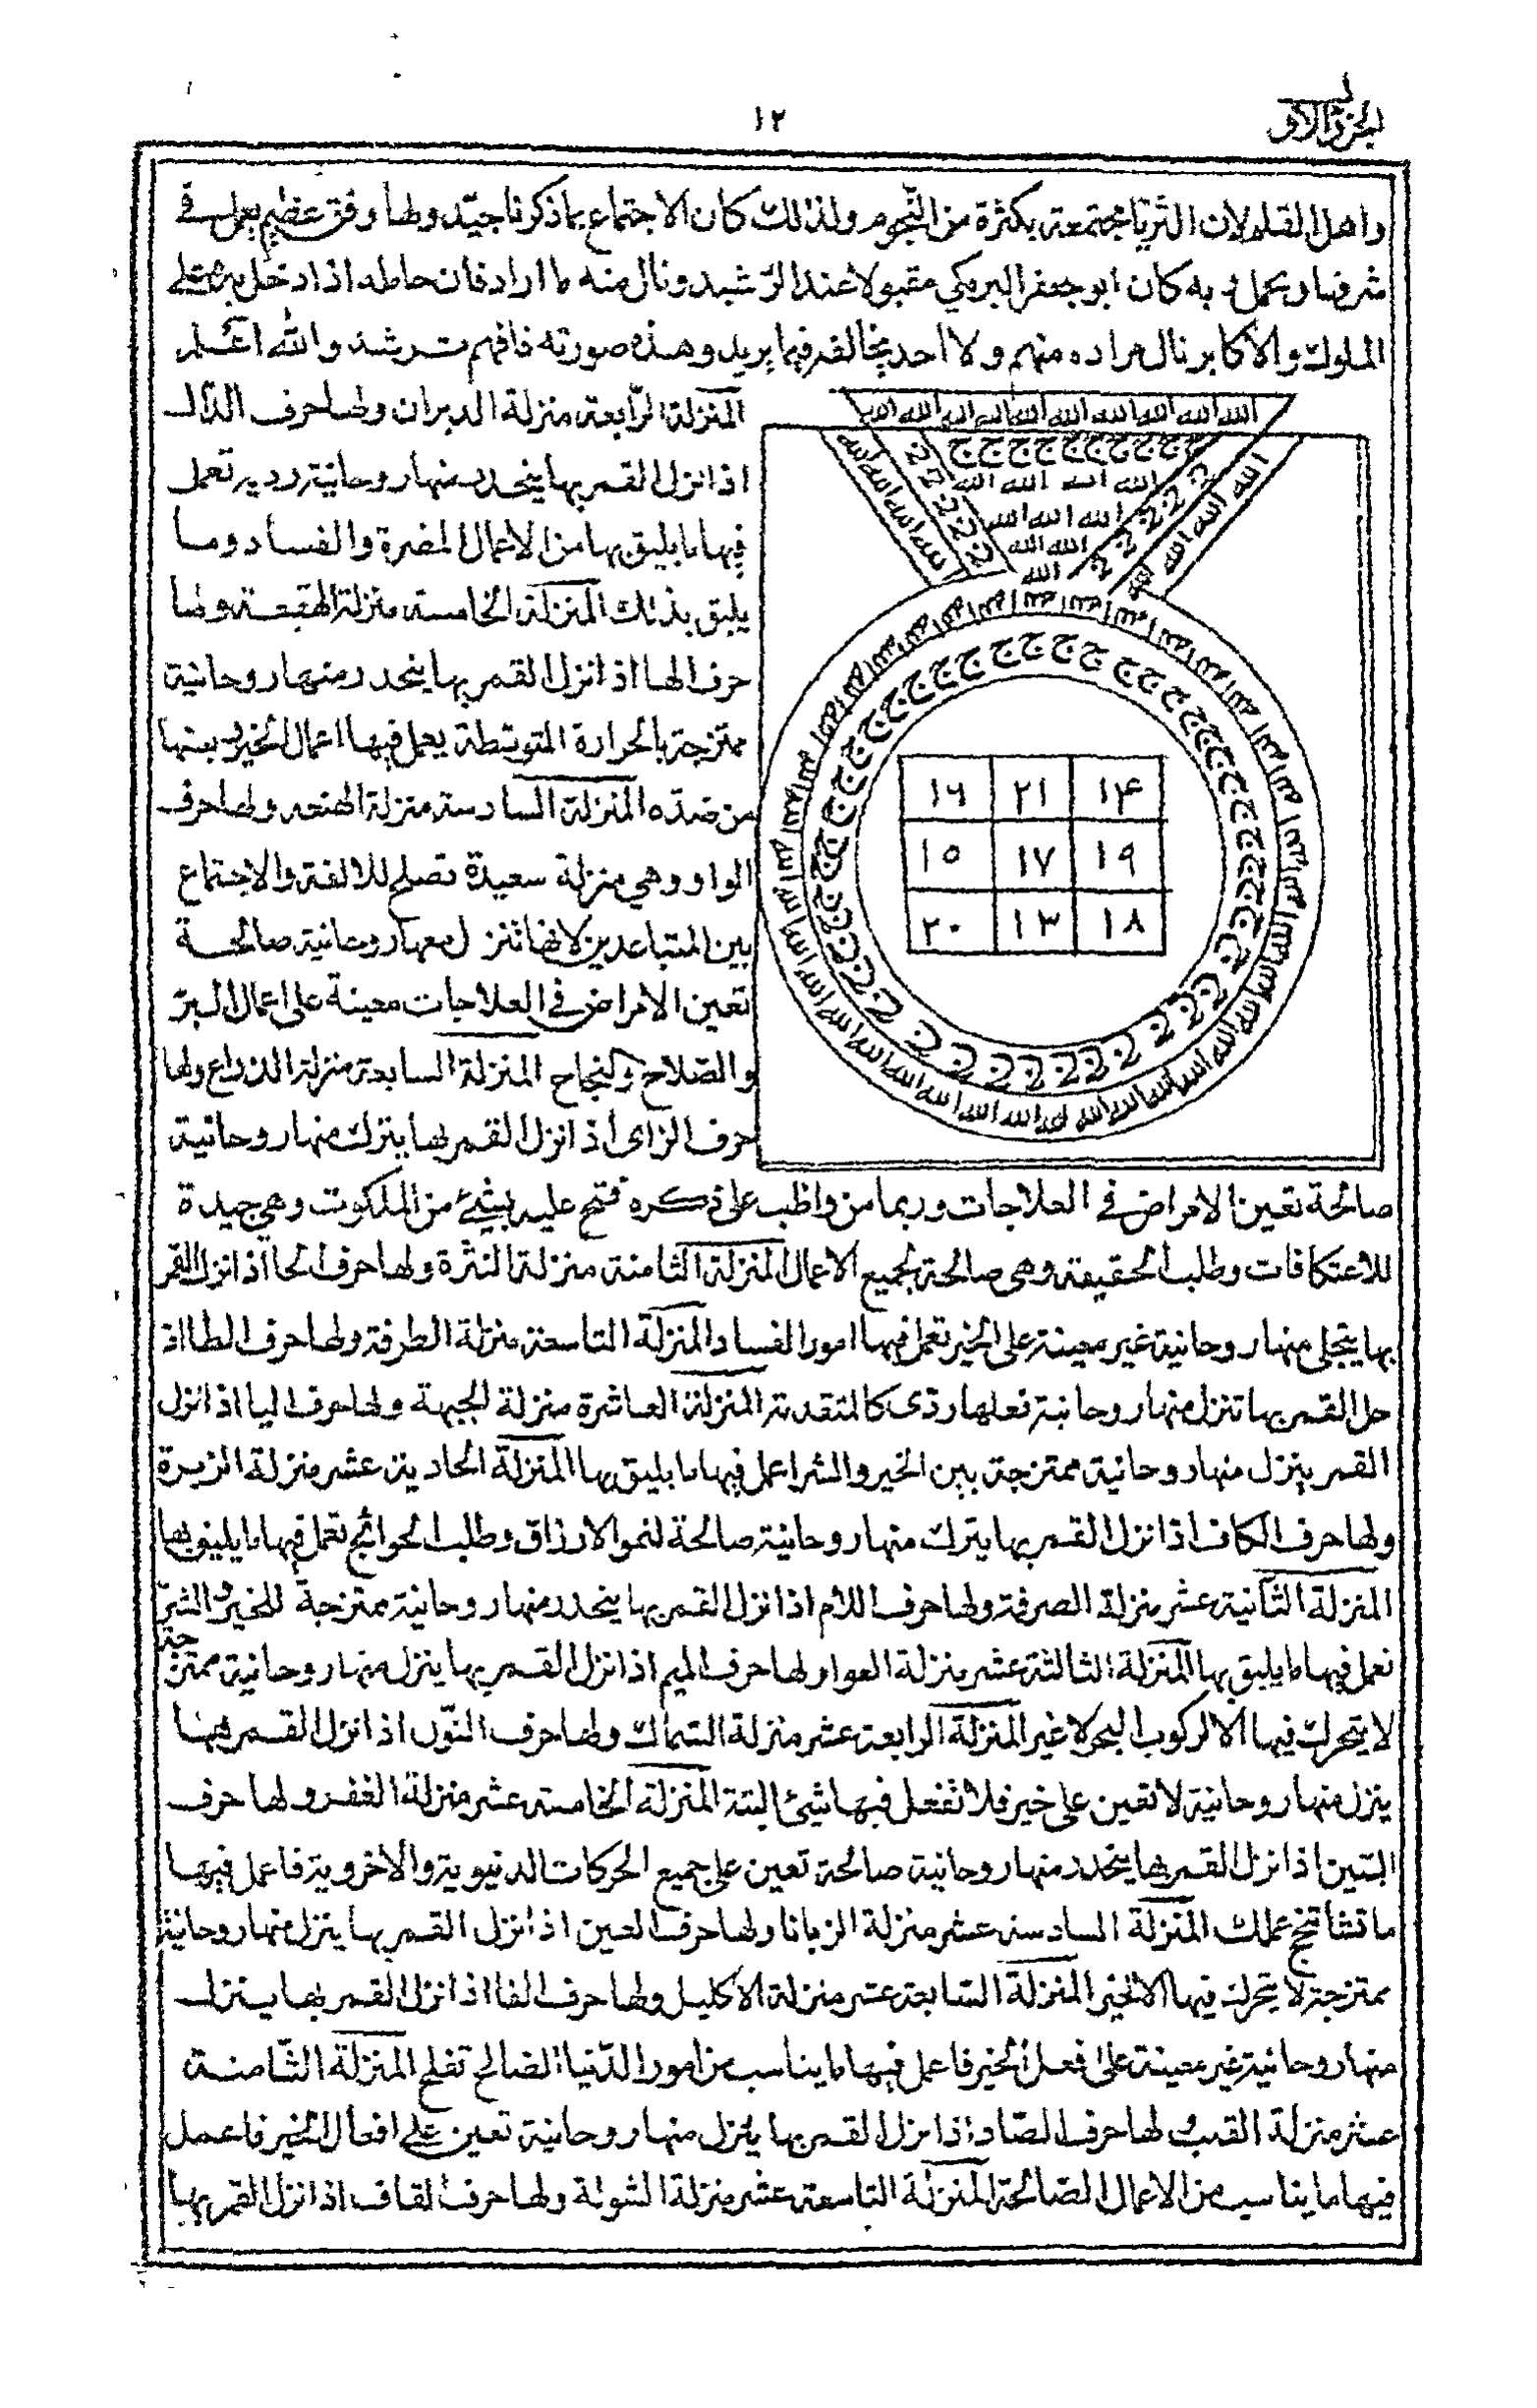 الجزء الاول
١٢
واهل القلم لان الثريا مجتمعة بكثرة من النجوم ولذلك كان الاجتماع بما ذكرنا جيّد ولها وفق عظيم يعمل في
شرفها ويحمل وبه كان ابو جعفر البرمكي مقبولا عند الرّشيد ونال منه ما اراد فان حامله اذا دخل به على
الملوك والأكابر نال مراده منهم ولا احد يخالفه فيما يريد وهذه صورته فافهم ترشد والله اعلم
المنزلة الرّابعة منزلة الدبران ولها حرف الدّال
اذا نزل القمر بها ينحدر منها روحانية رديه تعمل
فيها ما يليق بها من الاعمال المضرة والفساد وما
يليق بذلك المنزلة الخامسة منزلة الهقعة ولها
حرف الها اذا نزل القمر بها ينحدر منها روحانية
ممتزجة بالحرارة المتوسّطة يعمل فيها اعمال الخير
من ضدّه المنزلة السادسة منزلة الهنعه ولها حرف
الواو وهي منزلة سعيدة تصلح للالفة والاجتماع
بين المتباعدين لانها تنزل معها روحانية صالحة
تعين الامراض في العلاجات معينة على اعمال البرّ
والصّلاح والنجاح المنزلة السابعة منزلة الذراع ولها
حرف الزاى اذا نزل القمر بها ينزل منها روحانية
الله الله الله الله الله الله الله الله الله الله الله
ج ج ج ج ج ج ج ج ج
الله الله الله الله
الله الله الله
الله الله
الله
١٦ ٢١ ١۴
١٥ ١٧ ١٩
٢٠ ١٣ ١٨
صالحة تعين الامراض في العلاجات وربما من واظب على ذكره فتح عليه بشئ من الملكوت وهي جيدة
للاعتكافات وطلب الحقيقة وهي صالحة لجميع الاعمال المنزلة الثامنة منزلة النثرة ولها حرف الحا اذا نزل القمر
بها يتجلى منها روحانية غير معينة على الخير تعمل فيها امور الفساد المنزلة التاسعة منزلة الطرفة ولها حرف الطا اذ
حل القمر بها تنزل منها روحانية فعلها ردّى كالمتقدمة المنزلة العاشرة منزلة الجبهة ولها حرف اليا اذا نزل
القمر ينزل منها روحانية ممتزجة بين الخير والشر اعمل فيها ما يليق بها المنزلة الحادية عشر منزلة الزبرة
ولها حرف الكاف اذا نزل القمر بها ينزل منها روحانية صالحة لنمو الارزاق وطلب الحوائج تعمل فيها ما يليق بها
المنزلة الثّانية عشر منزلة الصرفة ولها حرف اللام اذا نزل القمر بها ينحدر منها روحانية ممتزجة للخير والشرّ
تعمل فيها ما يليق بها المنزلة الثالثة عشر منزلة العوا ولها حرف الميم اذا نزل القمر بها ينزل منها روحانية ممتزجة
لا يتحرك فيها الا لركوب البحر لا غير المنزلة الرابعة عشر منزلة السّماك ولها حرف النّون اذا نزل القمر بها
ينزل منها روحانية لا تعين على خير فلا تفعل فيها شئ البتة المنزلة الخامسة عشر منزلة الغفر ولها حرف
السّين اذا نزل القمر بها ينحدر منها روحانية صالحة تعين على جميع الحركات الدنيوية والأخروية فاعمل فيها
ما تشأ تنجح عملك المنزلة السادسة عشر منزلة الزبانا ولها حرف العين اذا نزل القمر بها ينزل منها روحانية
ممتزجة لا يتحرك فيها الا لخير المنزلة السّابعة عشر منزلة الأكليل ولها حرف الفا اذا نزل القمر بها ينزل
منها روحانية غير معينة على فعل الخير فاعمل فيها ما يناسب من امور الدّنيا الصالح تفلح المنزلة الثّامنة
عشر منزلة القلب ولها حرف الصّاد اذا نزل القمر بها ينزل منها روحانية تعين على افعال الخير فاعمل
فيها ما يناسب من الاعمال الصّالحة المنزلة التاسعة عشر منزلة الشولة ولها حرف القاف اذا نزل القمر بها